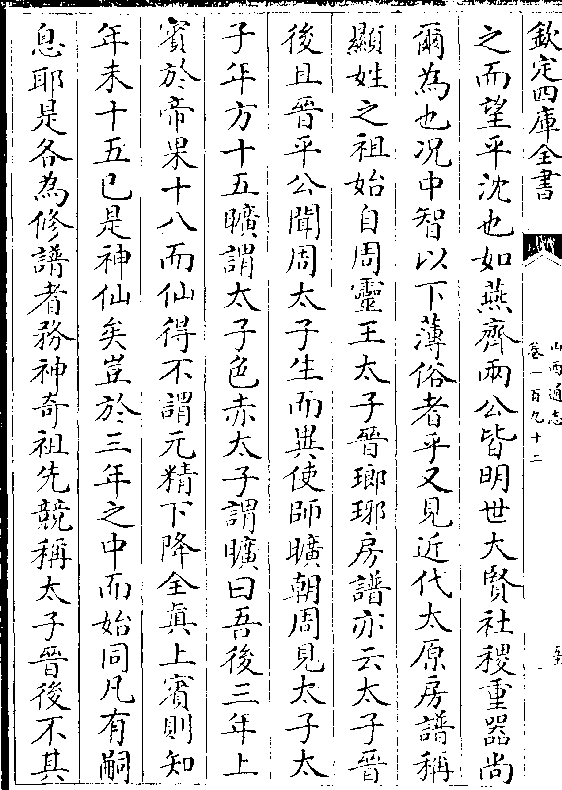 欽定四庫全書
山西通志
卷一百九十二
之而望平沈也如燕齊兩公皆明世大賢社稷重器尚
爾為也况中智以下薄俗者乎又見近代太原房譜稱
顯姓之祖始自周靈王太子晉瑯琊房譜亦云太子晉
後且晉平公聞周太子生而異使師曠朝周見太子太
子年方十五曠謂太子色赤太子謂曠曰吾後三年上
賓於帝果十八而仙得不謂元精下降全真上賓則知
年未十五已是神仙矣豈於三年之中而始同凡有嗣
息耶是各為修譜者務神奇祖先競稱太子晉後不其